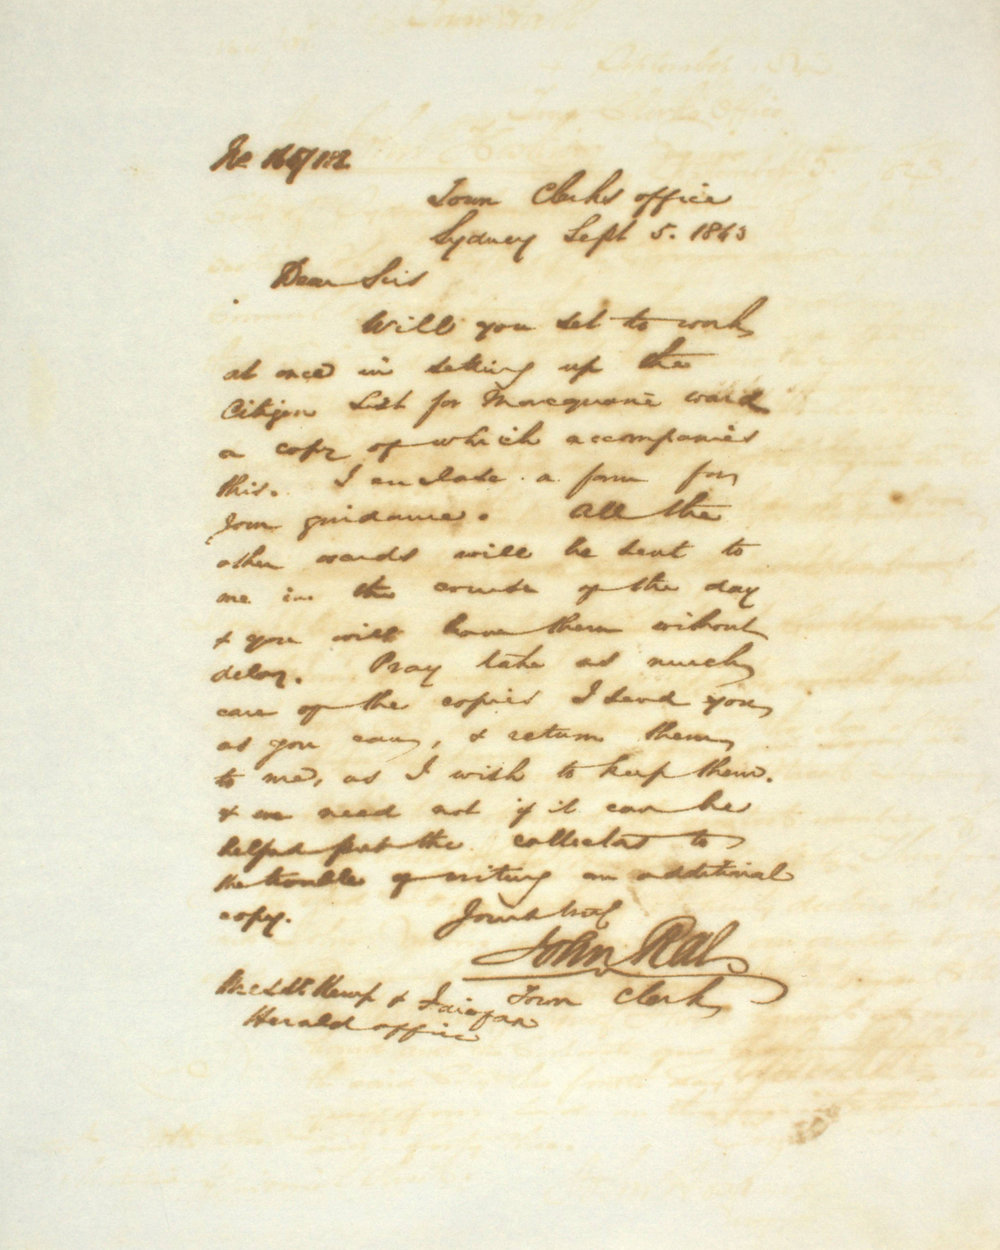 Town Clerks office
Sydney Sept 5. 1843
Dear Sirs
Will you set to work
at once in setting up the
Citizen List for Macquarie ward
a copy of which accompanies
this. I enclose a form for
your guidance. All the
other wards will be sent to
me in the course of the day
& you will have them without
delay. Pray take as much
care of the copies I send you
as you can, & return them
to me, as I wish to keep them.
& we need not if it can be
helped put the collectors to
the trouble of writing an additional
copy.
Yours truly
John Rae
Town Clerk
Kemp & Fairfax
Herald office